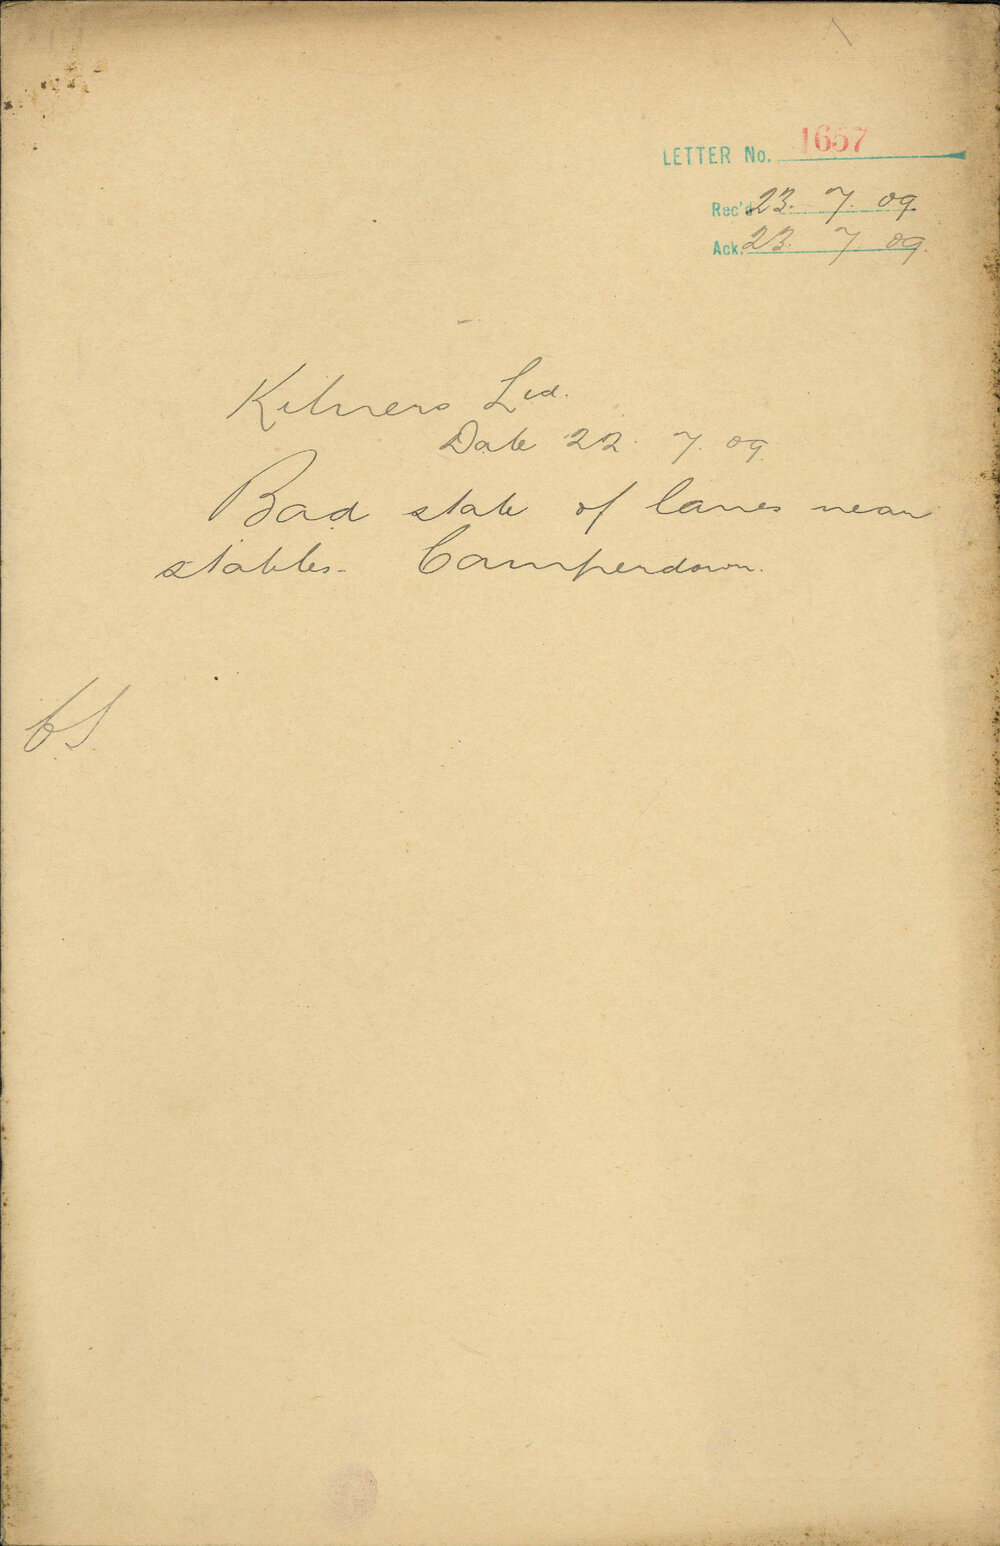 LETTER No. 1657
Rec'd 23. 7. 09.
Ack. 23. 7. 09.
Kilners Ltd.
Date 22. 7. 09.
Bad state of lanes near
stables. Camperdown.